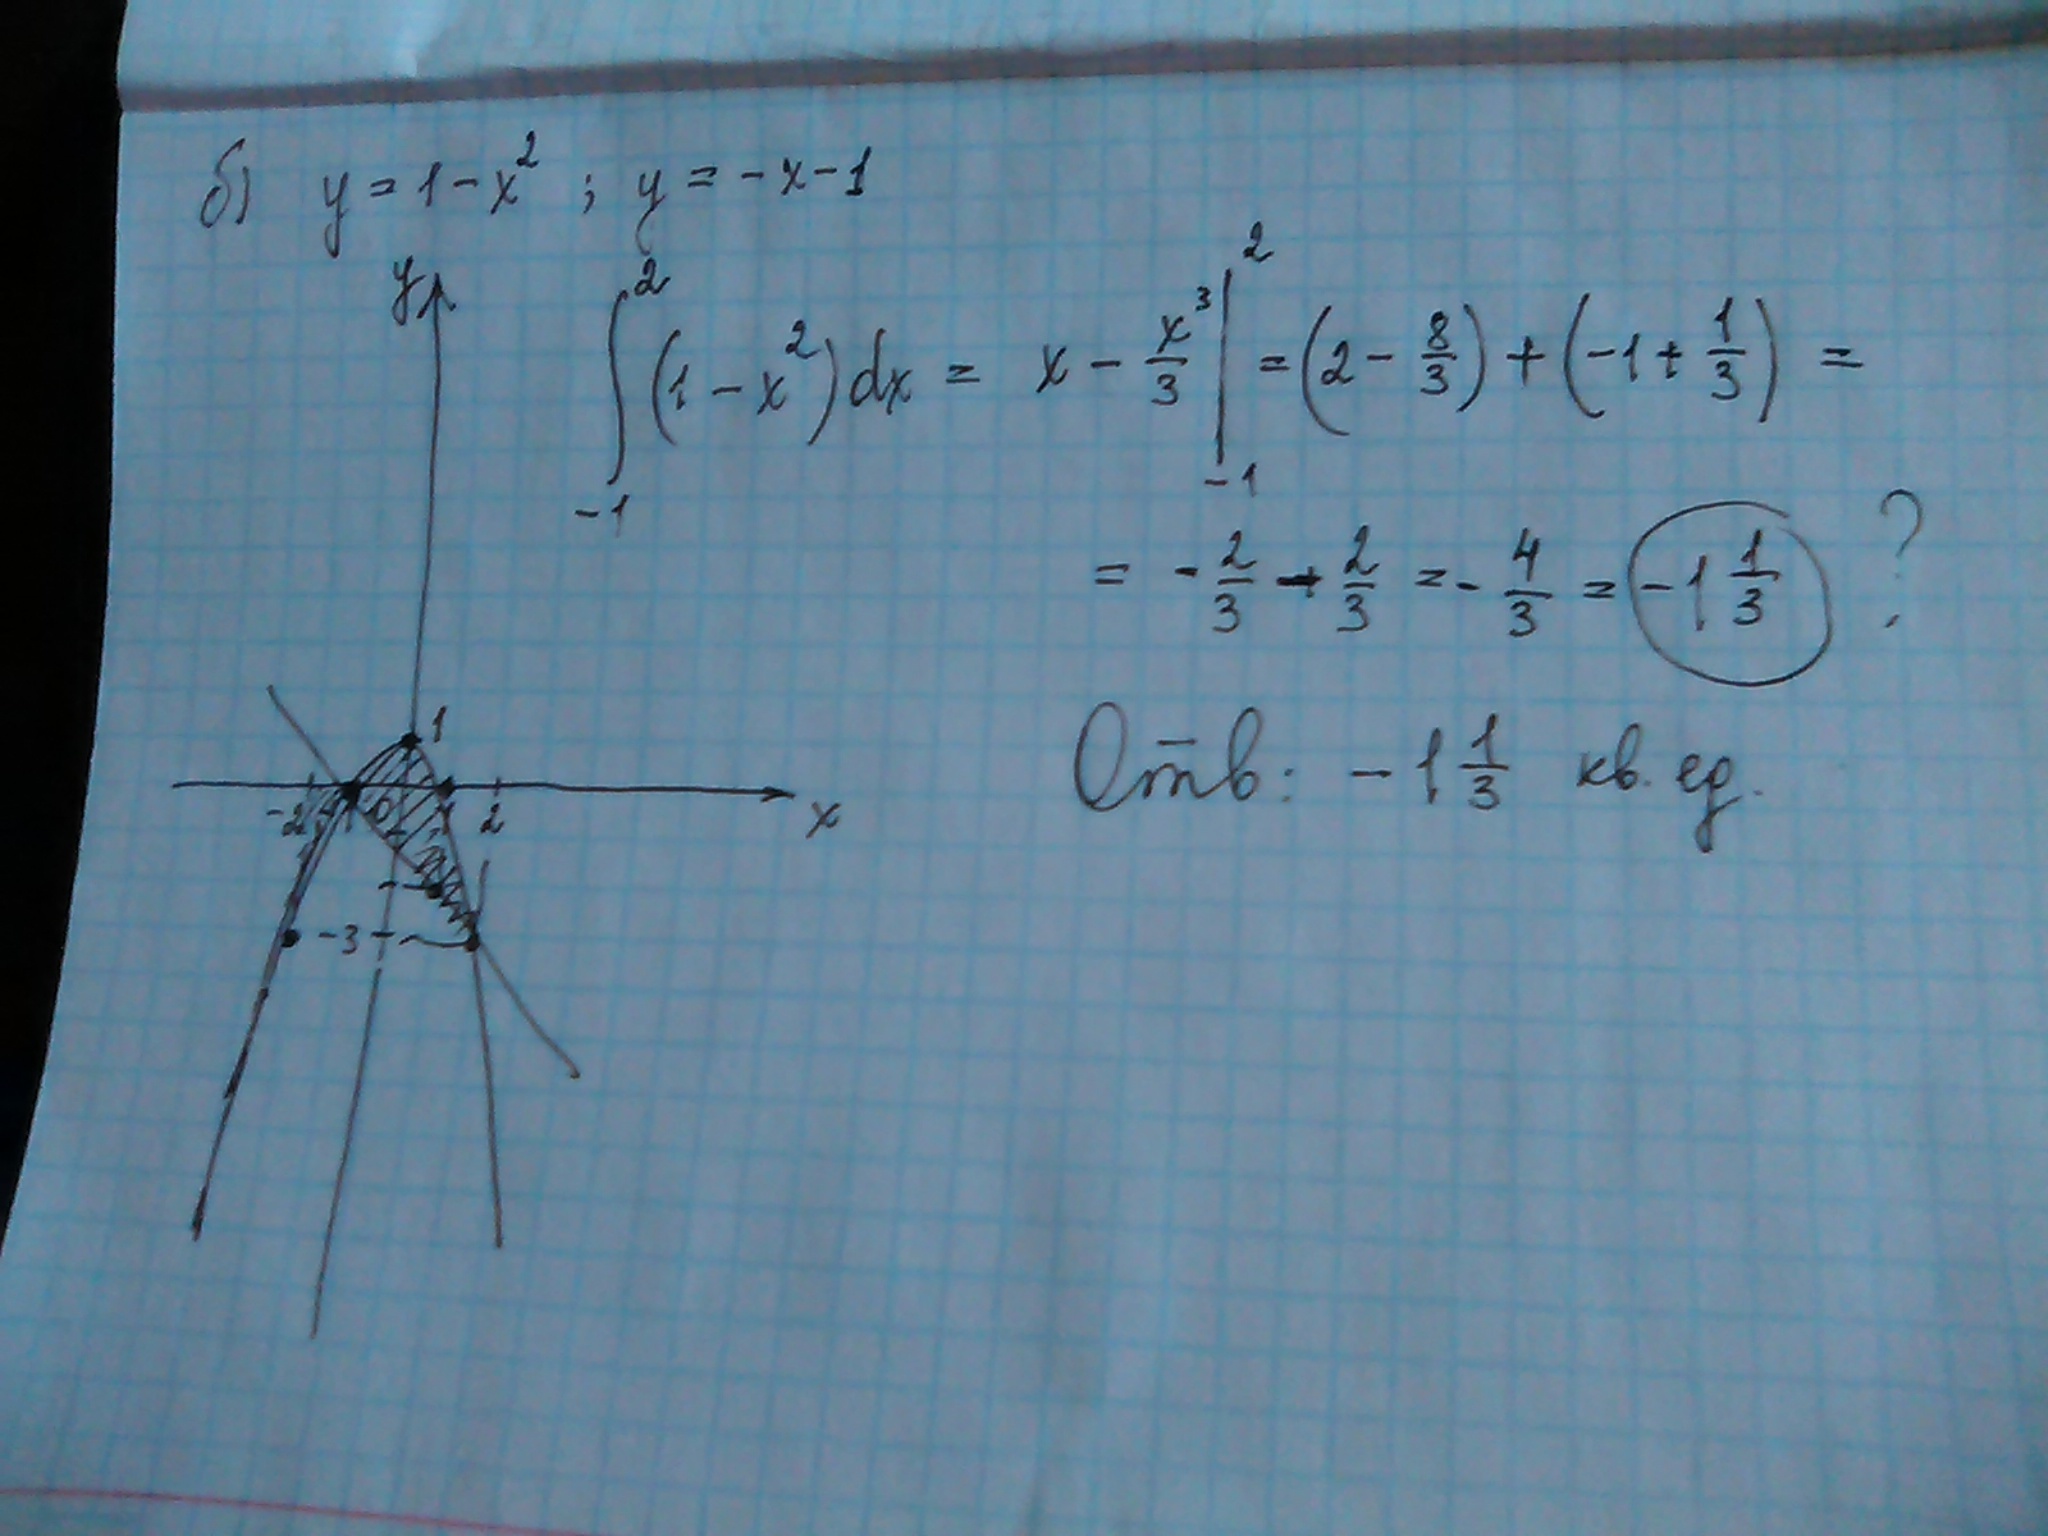 б) y = 1 - x² ; y = -x-1
∫₋₁² (1 - x²) dx = x - x³/3 |₋₁² = (2 - 8/3) + (-1 + 1/3) =
= - 2/3 - 2/3 = - 4/3 = -1 1/3 ?
Отв: -1 1/3 кв. ед.
y
1
-2 -1 0 1 2 x
-3